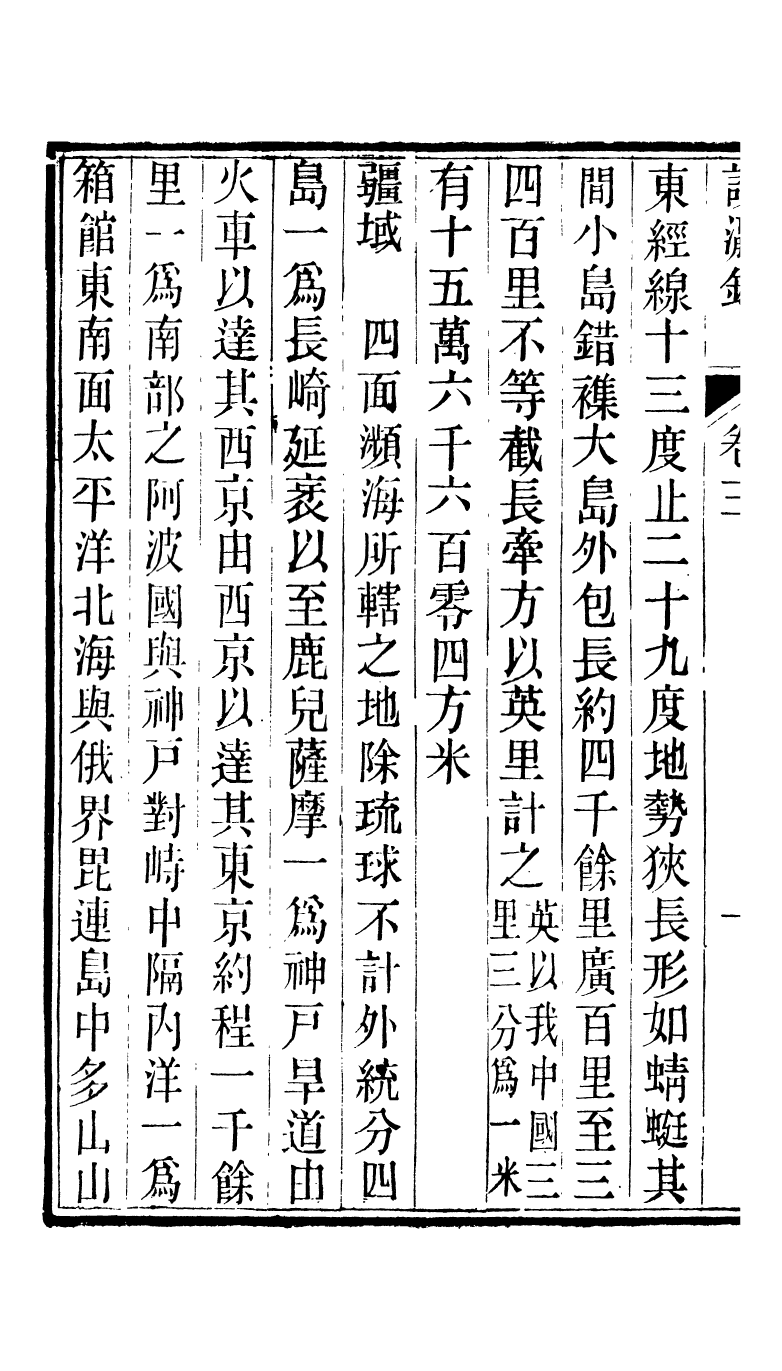 卷三
一
東經線十三度止二十九度地勢狹長形如蜻蜓其
間小島錯襍大島外包長約四千餘里廣百里至三
四百里不等截長牽方以英里計之英以我中國三里三分爲一米
有十五萬六千六百零四方米
疆域　四面瀕海所轄之地除琉球不計外統分四
島一爲長崎延袤以至鹿兒薩摩一爲神戸旱道由
火車以達其西京由西京以達其東京約程一千餘
里一爲南部之阿波國與神戸對峙中隔內洋一爲
箱館東南面太平洋北海與俄界毘連島中多山山